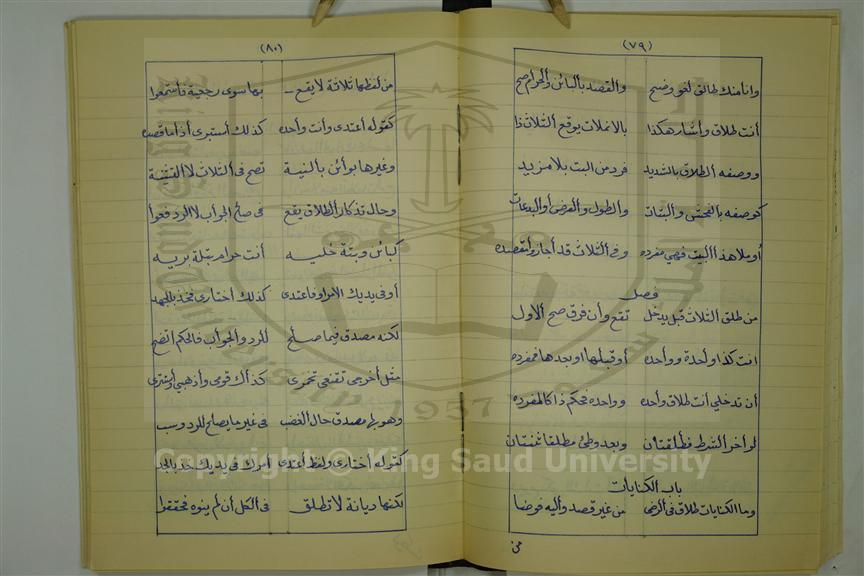 (٧٩)
وانا منك طالق لغو وضح والقصد بالبائن والحرام صح
أنت طلاق وأشار هكذا بالانملات يوقع الثلاث ذا
ووصفه الطلاق بالشديد فرد من البت بلا مزيد
كوصفه بالفحش والبتات والطول والعرض أو البدعات
أو ملا هذا البيت فهي مفرده وفي الثلاث قد أجازوا قصده
فصل
من طلق الثلاث قبل يدخل تقع وأن فرق صح الاول
انت كذا واحدة وواحده أو قبلها او بعدها فمفرده
أن تدخلي أنت طلاق واحده وواحده فحكم ذا كالمفرده
لو أخر الشرط فطلقتان وبعد وطئ مطلقا ثنتان
باب الكنايات
وما الكنايات طلاق في الرضى من غير قصد واليه فوضا
من
(٨٠)
من لفظها ثلاثة لا يقع بها سوى رجعية فاستمعوا
كقوله أعتدى وأنت واحده كذلك أستبرى أذا ما قصده
وغيرها بوائن بالنية تصح في الثلاث لا الثنتية
وحال تذكار الطلاق يقع في صالح الجواب لا الرد فعوا
كبائن وبتة خليه أنت حرام بتلة بريه
أو في يديك الامر او فاعتدى كذلك أختارى فخذ بالجهد
لكنه مصدق فيما صلح للرد والجواب فالحكم اتضح
مثل أخرجى تقنعى تخمرى كذاك قومى وأذهبي أو
وهو بها مصدق حال الغضب في غير ما يصلح للرد وسب
كقوله أختارى ولفظ أعتدى أمرك في يديك خذ بالجد
لكنها ديانة لا تطلق في الكل أن لم ينوه فحققوا
Copyright © King Saud University
1957